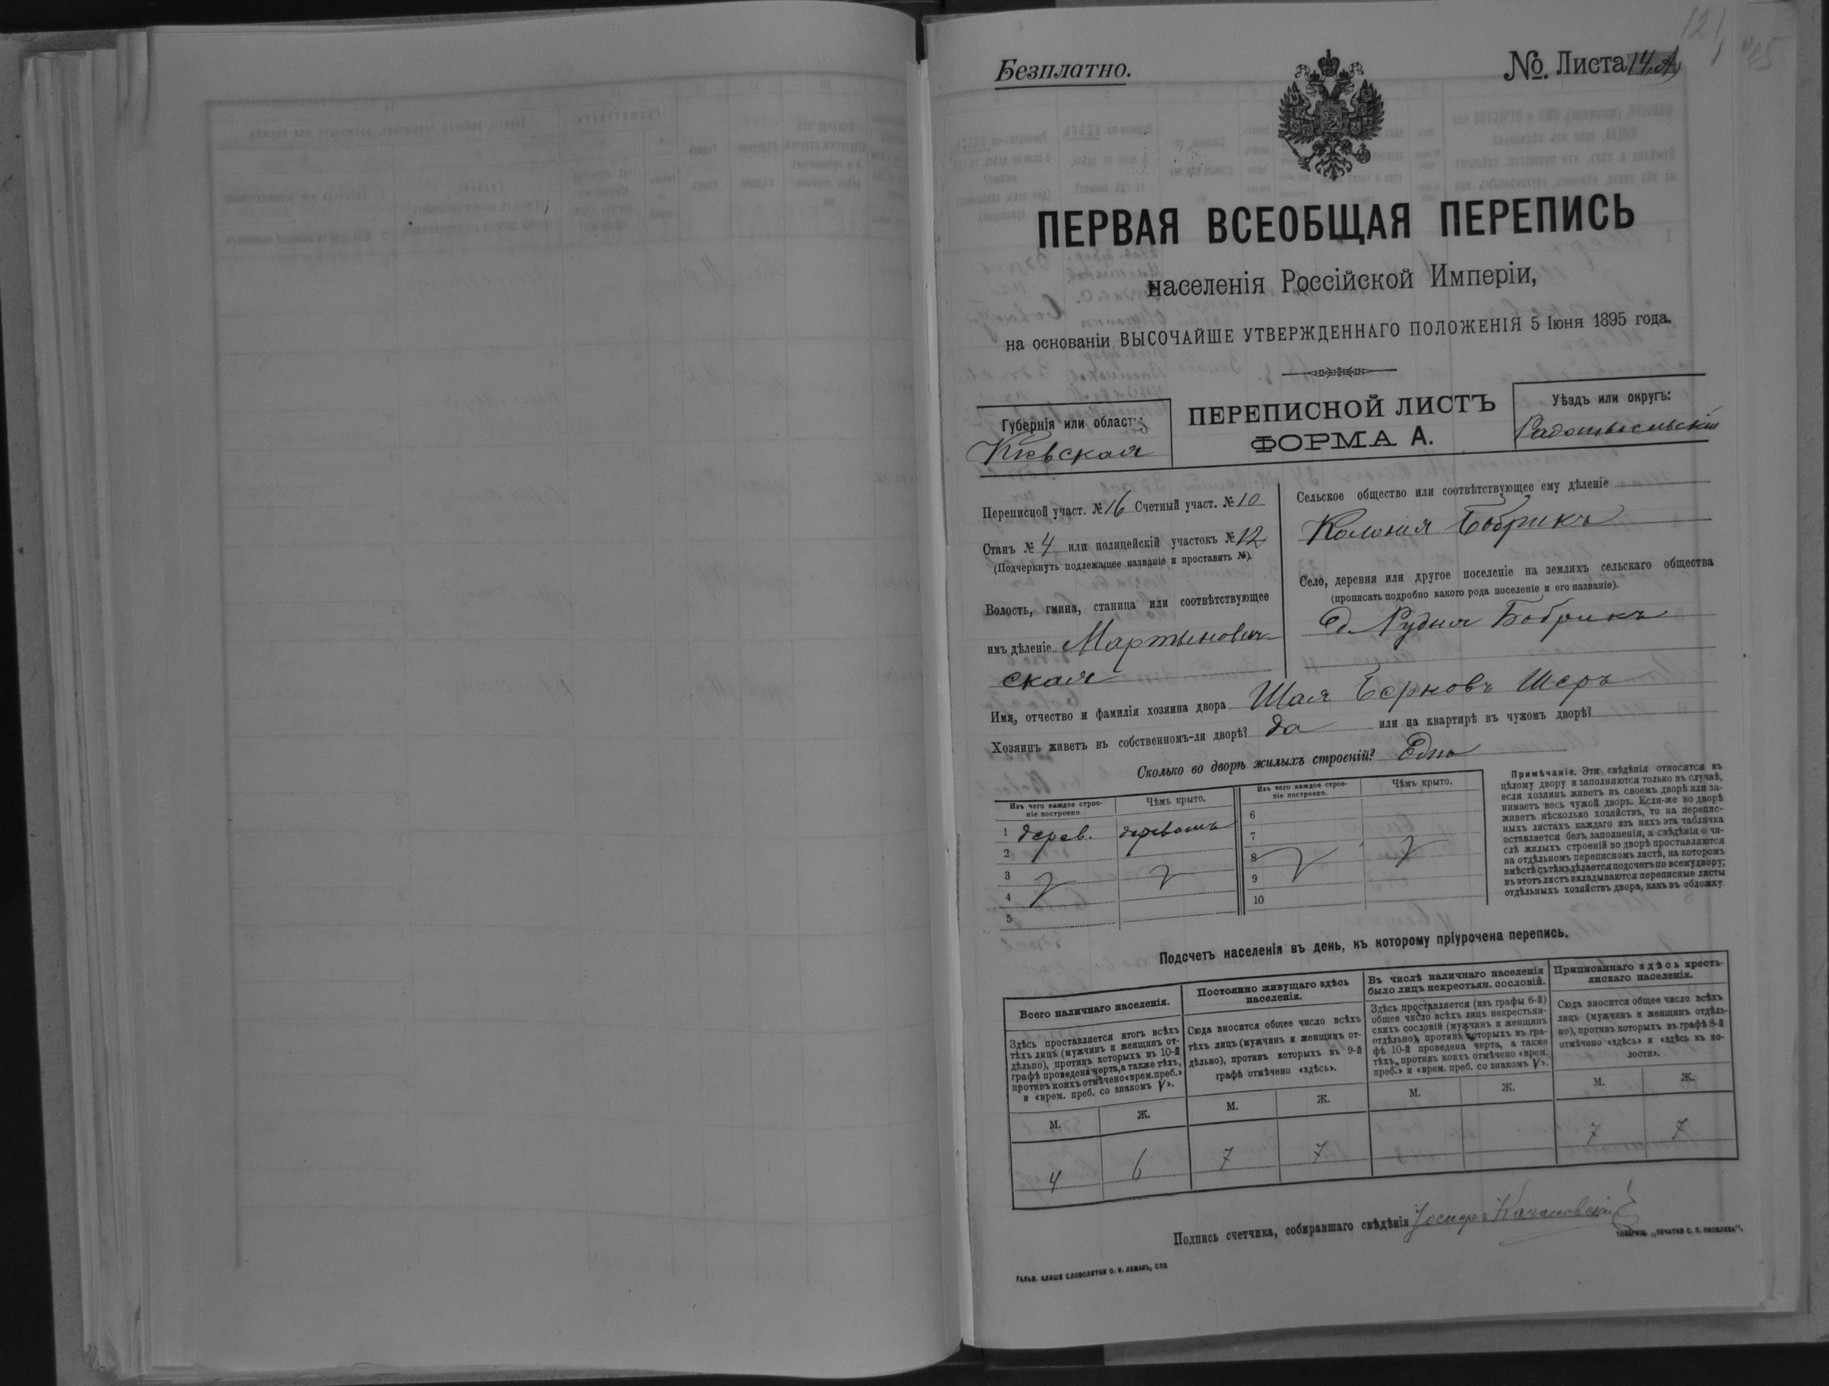 Безплатно.
№. Листа 14
ПЕРВАЯ ВСЕОБЩАЯ ПЕРЕПИСЬ
населенія Россійской Имперіи,
на основаніи ВЫСОЧАЙШЕ УТВЕРЖДЕННАГО ПОЛОЖЕНІЯ 5 Іюня 1895 года.
Губернія или область:
Кіевская
ПЕРЕПИСНОЙ ЛИСТЪ
ФОРМА А.
Уѣздъ или округъ:
Радомысльскій
Переписной участ. № 16 Счетный участ. № 10
Станъ № 4 или полицейскій участокъ № 12
(Подчеркнуть подлежащее названіе и проставить №).
Волость, гмина, станица или соотвѣтствующее
имъ дѣленіе Мартынович-
ская
Сельское общество или соотвѣтствующее ему дѣленіе
Колонія Бобрикъ
Село, деревня или другое поселеніе на земляхъ сельскаго общества
(прописать подробно какого рода поселеніе и его названіе).
д. Рудня Бобрикъ
Имя, отчество и фамилія хозяина двора Шая Берковъ Шеръ
Хозяинъ живетъ въ собственномъ-ли дворѣ? да или на квартирѣ въ чужомъ дворѣ?
Сколько во дворѣ жилыхъ строеній? Одно
Изъ чего каждое строе-
ніе построено.
Чѣмъ крыто.
Изъ чего каждое строе-
ніе построено.
Чѣмъ крыто.
1 дерев. деревомъ
2
3
4
5
6
7
8
9
10
Примѣчаніе. Эти свѣдѣнія относятся къ
цѣлому двору и заполняются только въ случаѣ,
если хозяинъ живетъ въ своемъ дворѣ или за-
нимаетъ весь чужой дворъ. Если-же во дворѣ
живетъ нѣсколько хозяйствъ, то на перепис-
ныхъ листахъ каждаго изъ нихъ эта табличка
оставляется безъ заполненія, а свѣдѣнія о чи-
слѣ жилыхъ строеній во дворѣ проставляются
на отдѣльномъ переписномъ листѣ, на которомъ
вмѣстѣ съ тѣмъ дѣлается подсчетъ по всему двору;
въ этотъ листъ вкладываются переписные листы
отдѣльныхъ хозяйствъ двора, какъ въ обложку.
Подсчетъ населенія въ день, къ которому пріурочена перепись.
Всего наличнаго населенія.
Здѣсь проставляется итогъ всѣхъ
тѣхъ лицъ (мужчинъ и женщинъ от-
дѣльно), противъ которыхъ въ 10-й
графѣ проведена черта, а также тѣхъ,
противъ коихъ отмѣчено «врем. преб.»
и «врем. преб. со знакомъ V».
Постоянно живущаго здѣсь
населенія.
Сюда вносится общее число всѣхъ
тѣхъ лицъ (мужчинъ и женщинъ от-
дѣльно), противъ которыхъ въ 9-й
графѣ отмѣчено «здѣсь».
Въ числѣ наличнаго населенія
было лицъ некрестьян. сословій.
Здѣсь проставляется (изъ графы 6-й)
общее число всѣхъ лицъ некрестьян-
скихъ сословій (мужчинъ и женщинъ
отдѣльно), противъ которыхъ въ гра-
фѣ 10-й проведена черта, а также
тѣхъ, противъ коихъ отмѣчено «врем.
преб.» и «врем. преб. со знакомъ V».
Приписаннаго здѣсь кресть-
янскаго населенія.
Сюда вносится общее число всѣхъ
лицъ (мужчинъ и женщинъ отдѣль-
но), противъ которыхъ въ графѣ 8-й
отмѣчено «здѣсь» и «здѣсь въ во-
лости».
М. Ж. М. Ж. М. Ж. М. Ж.
4 6 7 7 7 7
Подпись счетчика, собиравшаго свѣдѣнія Іосифъ Качановскій
ГАЛЬВ. КЛИШЕ СЛОВОЛИТНИ О. И. ЛЕМАНЪ, СПБ
ТОВАРИЩ. „ПЕЧАТНЯ С. П. ЯКОВЛЕВА“.